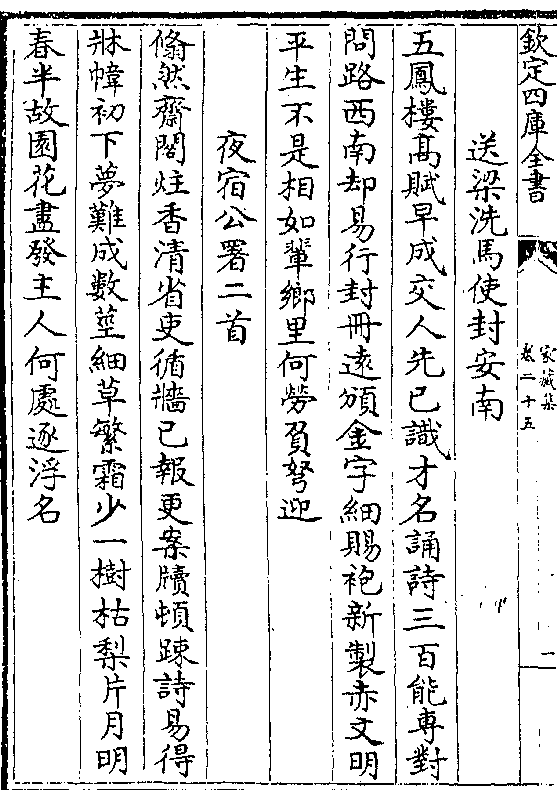 欽定四庫全書
家藏集
卷二十五
一
送梁洗馬使封安南
五鳳樓髙賦早成交人先已識才名誦詩三百能専對
問路西南却易行封冊遠頒金字細賜袍新製赤文明
平生不是相如輩鄉里何勞負弩迎
夜宿公署二首
翛然齋閣炷香清省吏循牆已報更案牘頓踈詩易得
牀幃初下夢難成數莖細草繁霜少一樹枯梨片月明
春半故園花盡發主人何處逐浮名